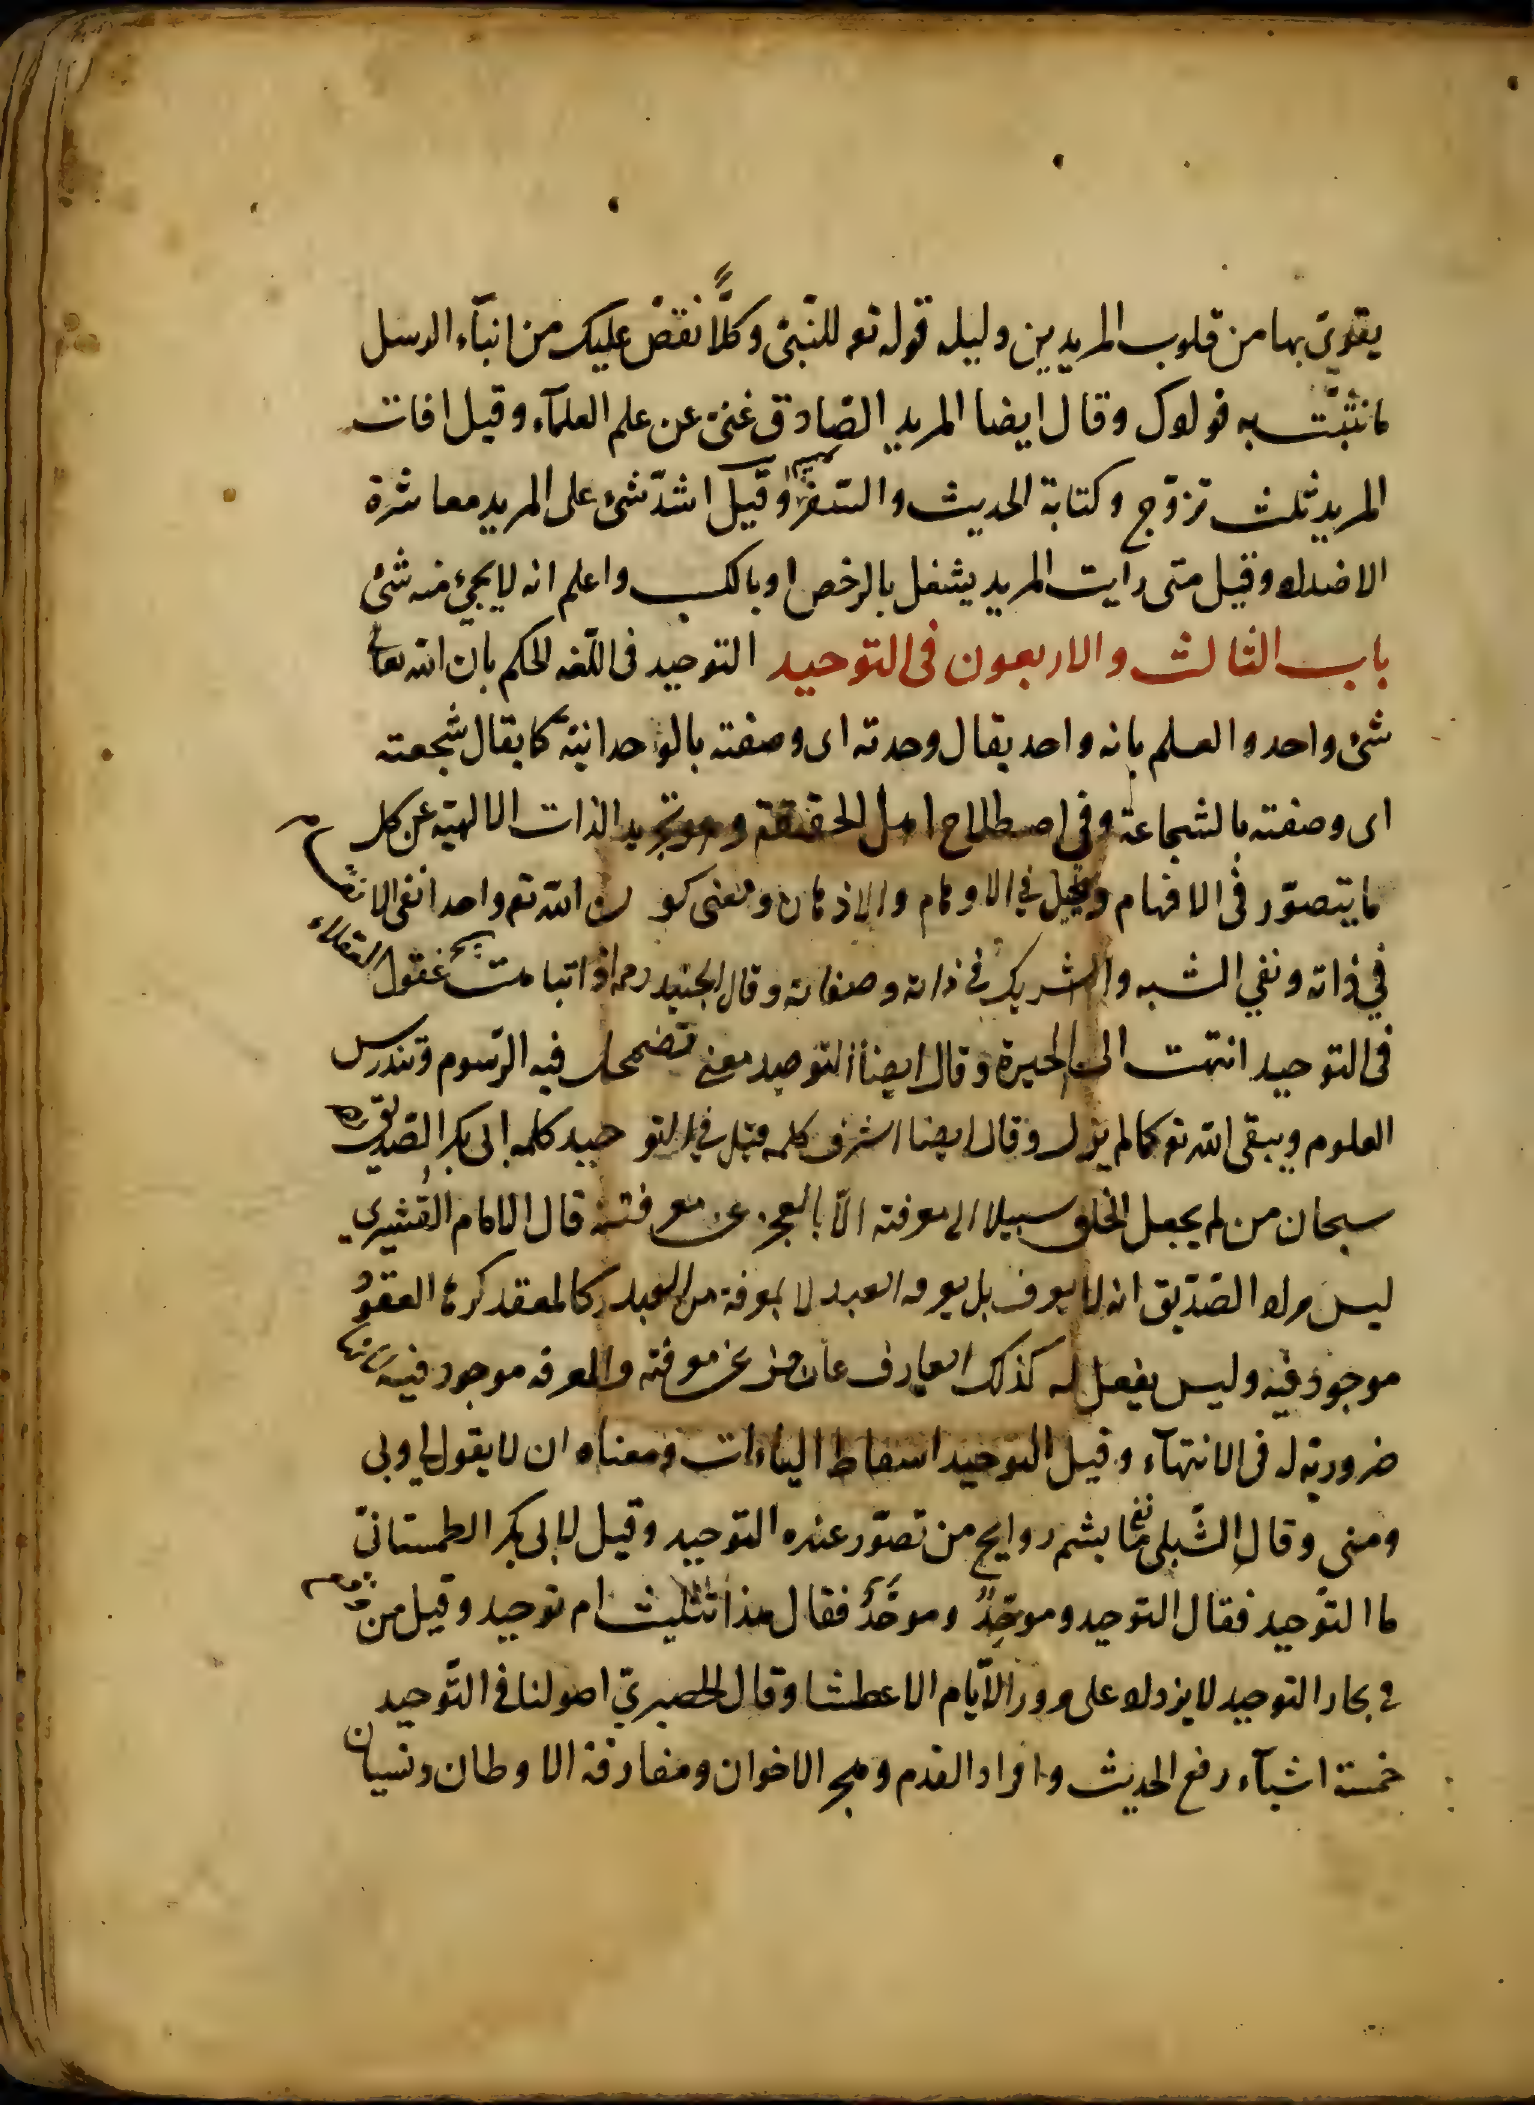 يقوي بها من قلوب المريدين دليله قوله تع للنبي وكلًّا نقص عليك من انبآء الرسل
ما نثبّت به فوادك وقال ايضا المريد الصّادق غنيّ عن علم العلمآء وقيل افات
المريد ثلث تزوّج وكتابة الحديث والسفر وقيل اشدّ شئ على المريد معاشرة
الاضداد وقيل متى رايت المريد يشغل بالرخص او بالكسب واعلم انه لا يجئ منه شئ
باب الثالث والاربعون فى التوحيد التوحيد فى اللّغه الحكم بان الله تعالى
شئ واحد والعلم بانه واحد يقال وحدته اى وصفته بالوحدانيّة كما يقال شجعته
اى وصفته بالشجاعة وفى اصطلاح اهل الحقيقة وهو تجريد الذات الالهيّة عن كل
ما يتصوّر فى الافهام ويخيل فى الاوهام والاذهان ومعنى كون الله تع واحدا نفى الانقسام
في ذاته ونفي الشبه والشريك فى ذاته وصفاته وقال الجنيد رحمه اذا تناهت عقول العقلاء
فى التوحيد انتهت الى الحيرة وقال ايضا التوحيد معنى تضمحل فيه الرّسوم وتندرس
العلوم ويبقى الله تع كما لم يزل وقال ايضا اشرف كلمه قيل فى التوحيد كلمه ابى بكر الصديق رضه
سبحان من لم يجعل لخلقه سبيلا الى معرفته الّا بالعجز عن معرفته قال الامام القشيري
ليس مراد الصّديق انه لا يعرف بل يعرفه العبد لا بمعرفة من العبد كالمعقد كرها العقود
موجود فيه وليس بفعل له كذلك العارف عاجز عن معرفته والمعرفه موجود فيه لانها
ضروريّه له فى الانتهآء وقيل التوحيد اسقاط الياءات ومعناه ان لا يقول لى وبى
ومنى وقال الشّبلى ما يشم روايح من تصوّر عنده التوحيد وقيل لابى بكر الطمستانيّ
ما التوّحيد فقال التوحيد وموحِّدٌ وموحَّدٌ فقال هذا تثليث ام توحيد وقيل من وقع
فى بحار التوحيد لا يزداد على مرور الايّام الا عطشا وقال الحصريّ اصولنا فى التّوحيد
خمسة اشيآء رفع الحديث وافراد القدم وهجر الاخوان ومفارقة الاوطان ونسيان